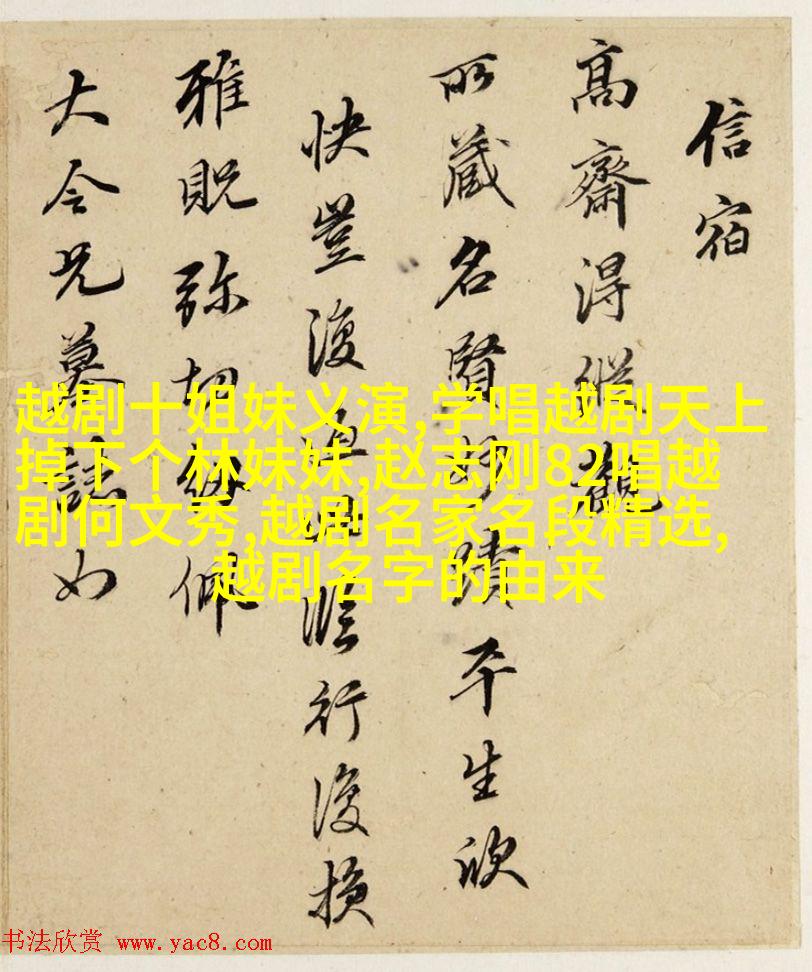 信宿
高齋得縱觀
所藏名賢妙蹟平生欣
快豈復過臨行復損
雅貺弥切佩
大令兄墓誌如
越剧十姐妹义演,学唱越剧天上
掉下个林妹妹,赵志刚82唱越
剧何文秀,越剧名家名段精选,
越剧名字的由来
书法欣赏 www.yac8.com